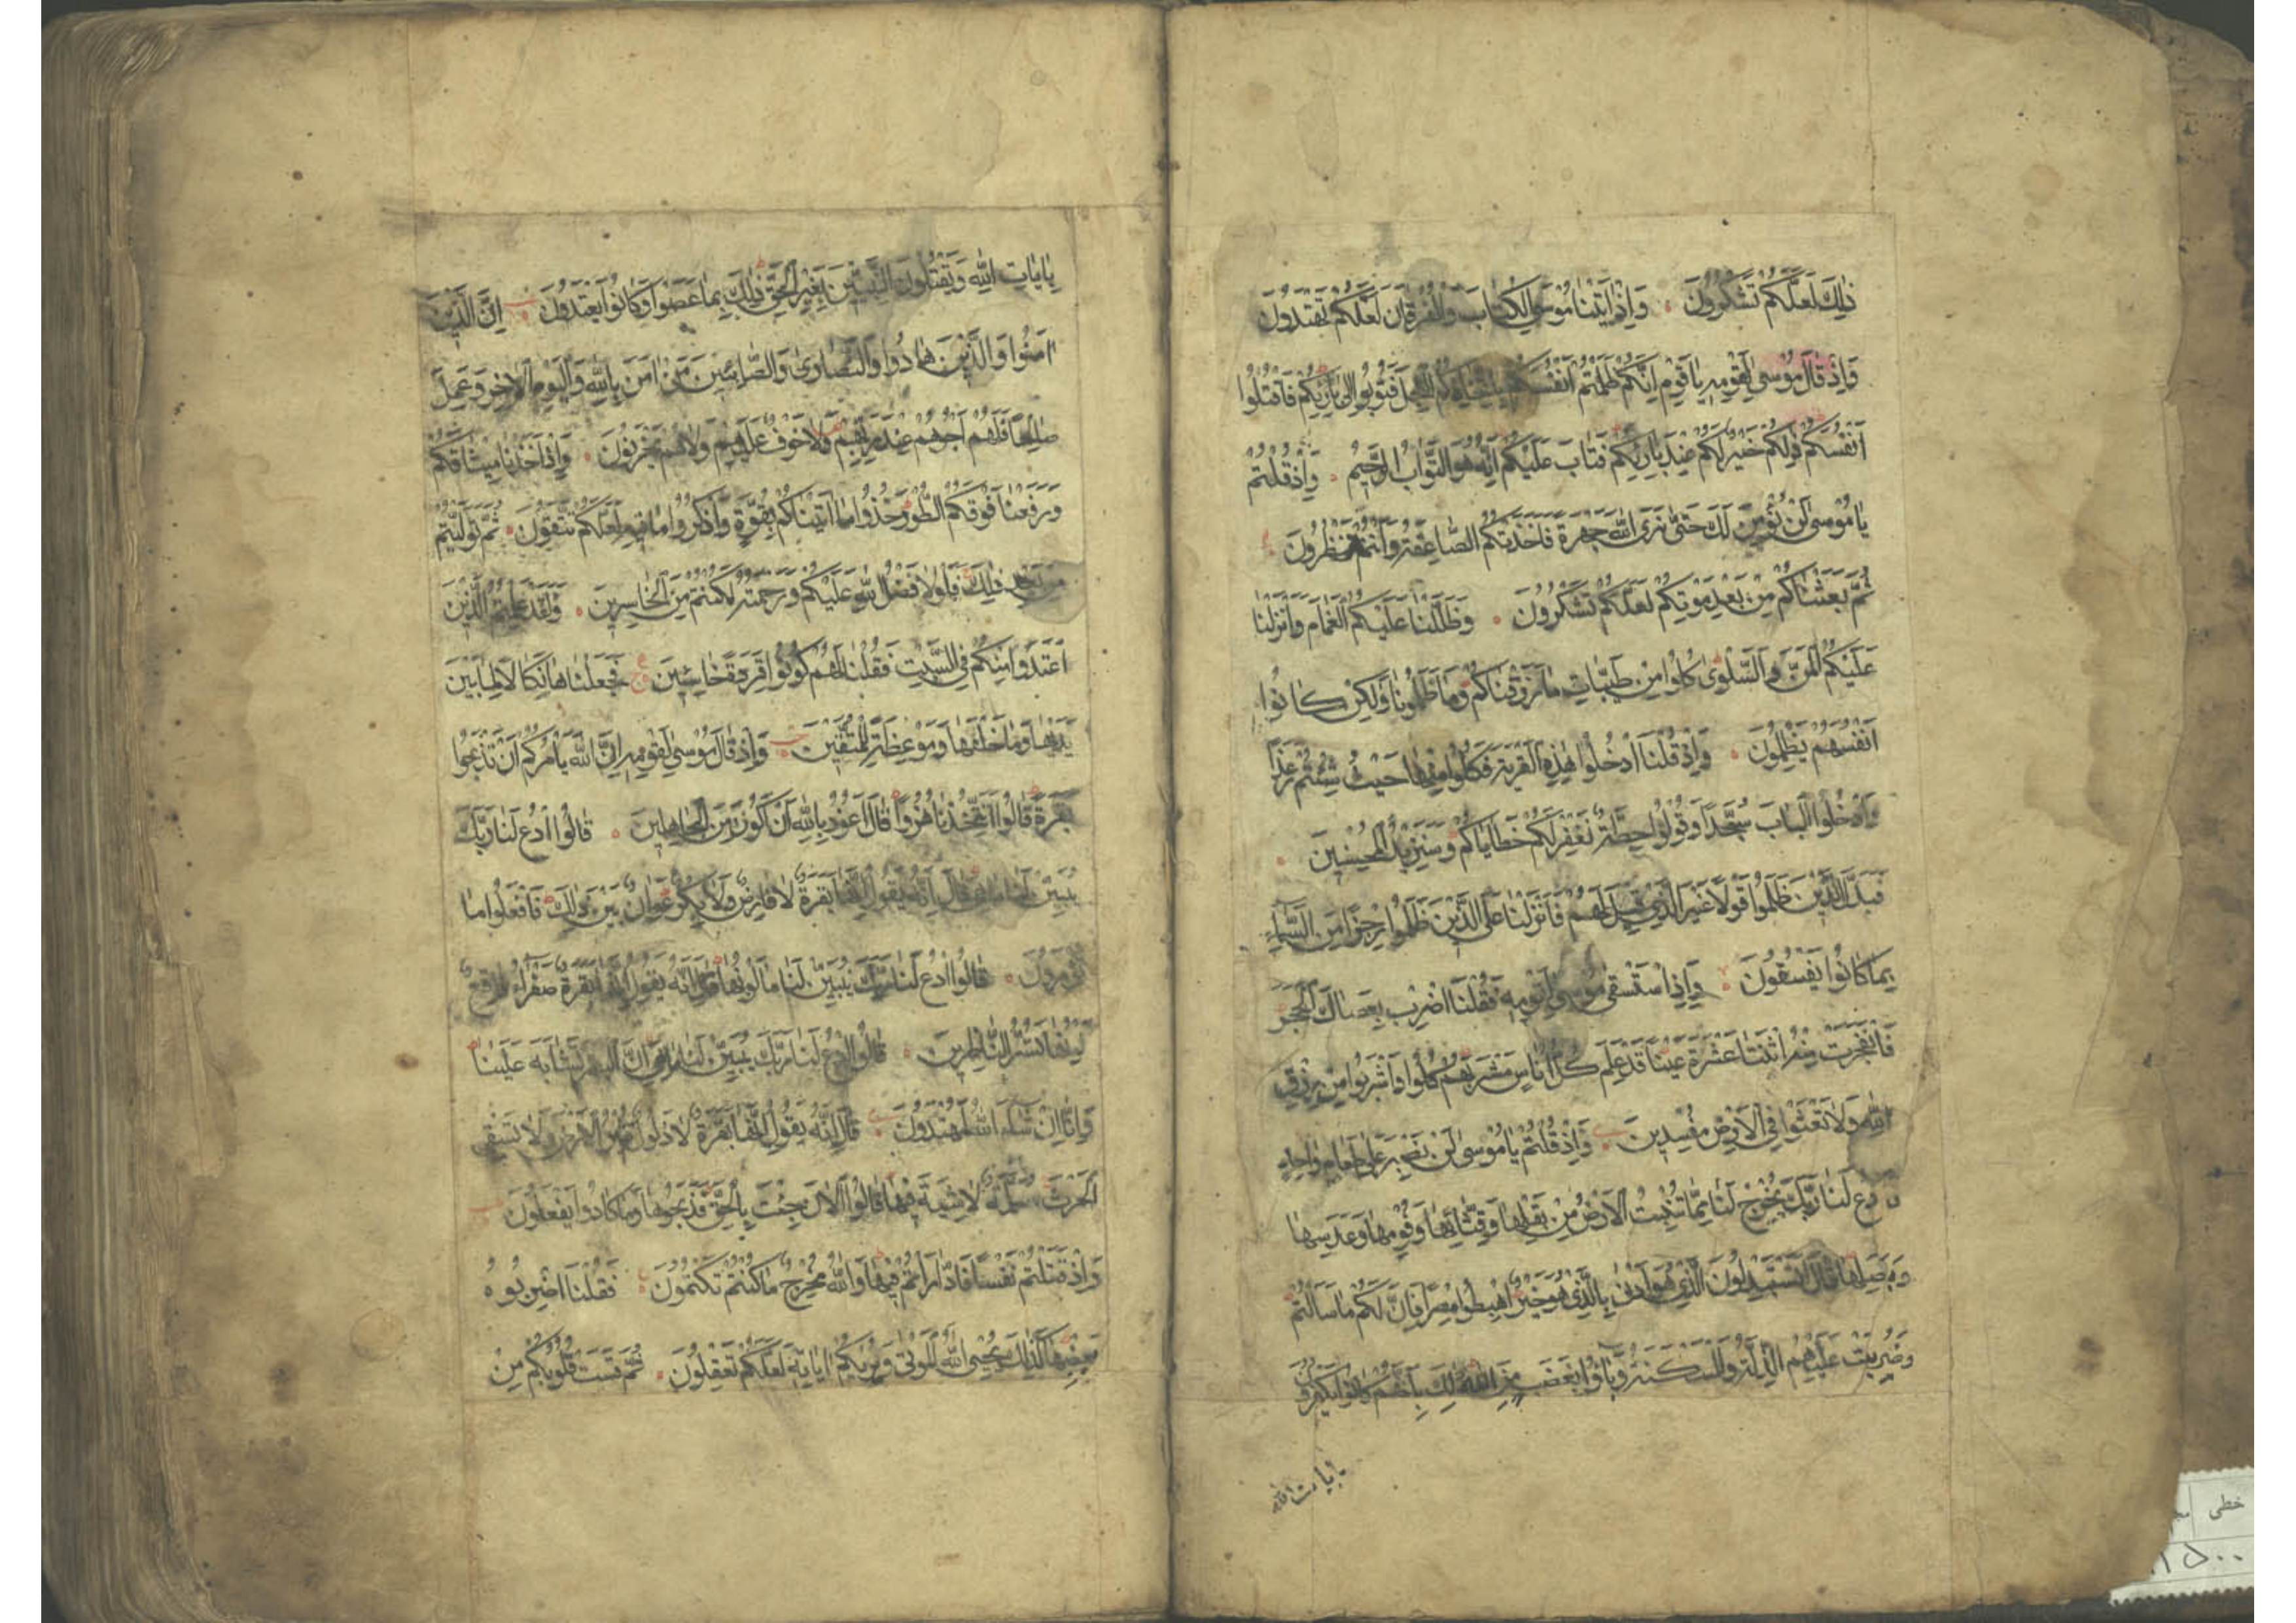 ذٰلِكَ لَعَلَّكُمْ تَشْكُرُونَ وَاِذْ اٰتَيْنَا مُوسَى الْكِتَابَ وَالْفُرْقَانَ لَعَلَّكُمْ تَهْتَدُونَ
وَاِذْ قَالَ مُوسٰى لِقَوْمِهِ يَا قَوْمِ اِنَّكُمْ ظَلَمْتُمْ اَنْفُسَكُمْ بِاتِّخَاذِكُمُ الْعِجْلَ فَتُوبُوا اِلٰى بَارِئِكُمْ فَاقْتُلُوا
اَنْفُسَكُمْ ذٰلِكُمْ خَيْرٌ لَكُمْ عِنْدَ بَارِئِكُمْ فَتَابَ عَلَيْكُمْ اِنَّهُ هُوَ التَّوَّابُ الرَّحِيمُ وَاِذْ قُلْتُمْ
يَا مُوسٰى لَنْ نُؤْمِنَ لَكَ حَتّٰى نَرَى اللّٰهَ جَهْرَةً فَاَخَذَتْكُمُ الصَّاعِقَةُ وَاَنْتُمْ تَنْظُرُونَ
ثُمَّ بَعَثْنَاكُمْ مِنْ بَعْدِ مَوْتِكُمْ لَعَلَّكُمْ تَشْكُرُونَ وَظَلَّلْنَا عَلَيْكُمُ الْغَمَامَ وَاَنْزَلْنَا
عَلَيْكُمُ الْمَنَّ وَالسَّلْوٰى كُلُوا مِنْ طَيِّبَاتِ مَا رَزَقْنَاكُمْ وَمَا ظَلَمُونَا وَلٰكِنْ كَانُوا
اَنْفُسَهُمْ يَظْلِمُونَ وَاِذْ قُلْنَا ادْخُلُوا هٰذِهِ الْقَرْيَةَ فَكُلُوا مِنْهَا حَيْثُ شِئْتُمْ رَغَدًا
وَادْخُلُوا الْبَابَ سُجَّدًا وَقُولُوا حِطَّةٌ نَغْفِرْ لَكُمْ خَطَايَاكُمْ وَسَنَزِيدُ الْمُحْسِنِينَ
فَبَدَّلَ الَّذِينَ ظَلَمُوا قَوْلًا غَيْرَ الَّذِي قِيلَ لَهُمْ فَاَنْزَلْنَا عَلَى الَّذِينَ ظَلَمُوا رِجْزًا مِنَ السَّمَاءِ
بِمَا كَانُوا يَفْسُقُونَ وَاِذِ اسْتَسْقٰى مُوسٰى لِقَوْمِهِ فَقُلْنَا اضْرِبْ بِعَصَاكَ الْحَجَرَ
فَانْفَجَرَتْ مِنْهُ اثْنَتَا عَشْرَةَ عَيْنًا قَدْ عَلِمَ كُلُّ اُنَاسٍ مَشْرَبَهُمْ كُلُوا وَاشْرَبُوا مِنْ رِزْقِ
اللّٰهِ وَلَا تَعْثَوْا فِي الْاَرْضِ مُفْسِدِينَ وَاِذْ قُلْتُمْ يَا مُوسٰى لَنْ نَصْبِرَ عَلٰى طَعَامٍ وَاحِدٍ
فَادْعُ لَنَا رَبَّكَ يُخْرِجْ لَنَا مِمَّا تُنْبِتُ الْاَرْضُ مِنْ بَقْلِهَا وَقِثَّائِهَا وَفُومِهَا وَعَدَسِهَا
وَبَصَلِهَا قَالَ اَتَسْتَبْدِلُونَ الَّذِي هُوَ اَدْنٰى بِالَّذِي هُوَ خَيْرٌ اهْبِطُوا مِصْرًا فَاِنَّ لَكُمْ مَا سَاَلْتُمْ
وَضُرِبَتْ عَلَيْهِمُ الذِّلَّةُ وَالْمَسْكَنَةُ وَبَاؤُا بِغَضَبٍ مِنَ اللّٰهِ ذٰلِكَ بِاَنَّهُمْ كَانُوا يَكْفُرُونَ
بايات الله
بِاٰيَاتِ اللّٰهِ وَيَقْتُلُونَ النَّبِيِّينَ بِغَيْرِ الْحَقِّ ذٰلِكَ بِمَا عَصَوْا وَكَانُوا يَعْتَدُونَ اِنَّ الَّذِينَ
اٰمَنُوا وَالَّذِينَ هَادُوا وَالنَّصَارٰى وَالصَّابِئِينَ مَنْ اٰمَنَ بِاللّٰهِ وَالْيَوْمِ الْاٰخِرِ وَعَمِلَ
صَالِحًا فَلَهُمْ اَجْرُهُمْ عِنْدَ رَبِّهِمْ وَلَا خَوْفٌ عَلَيْهِمْ وَلَا هُمْ يَحْزَنُونَ وَاِذْ اَخَذْنَا مِيثَاقَكُمْ
وَرَفَعْنَا فَوْقَكُمُ الطُّورَ خُذُوا مَا اٰتَيْنَاكُمْ بِقُوَّةٍ وَاذْكُرُوا مَا فِيهِ لَعَلَّكُمْ تَتَّقُونَ ثُمَّ تَوَلَّيْتُمْ
مِنْ بَعْدِ ذٰلِكَ فَلَوْلَا فَضْلُ اللّٰهِ عَلَيْكُمْ وَرَحْمَتُهُ لَكُنْتُمْ مِنَ الْخَاسِرِينَ وَلَقَدْ عَلِمْتُمُ الَّذِينَ
اعْتَدَوْا مِنْكُمْ فِي السَّبْتِ فَقُلْنَا لَهُمْ كُونُوا قِرَدَةً خَاسِئِينَ فَجَعَلْنَاهَا نَكَالًا لِمَا بَيْنَ
يَدَيْهَا وَمَا خَلْفَهَا وَمَوْعِظَةً لِلْمُتَّقِينَ وَاِذْ قَالَ مُوسٰى لِقَوْمِهِ اِنَّ اللّٰهَ يَأْمُرُكُمْ اَنْ تَذْبَحُوا
بَقَرَةً قَالُوا اَتَتَّخِذُنَا هُزُوًا قَالَ اَعُوذُ بِاللّٰهِ اَنْ اَكُونَ مِنَ الْجَاهِلِينَ قَالُوا ادْعُ لَنَا رَبَّكَ
يُبَيِّنْ لَنَا مَا هِيَ قَالَ اِنَّهُ يَقُولُ اِنَّهَا بَقَرَةٌ لَا فَارِضٌ وَلَا بِكْرٌ عَوَانٌ بَيْنَ ذٰلِكَ فَافْعَلُوا مَا
تُؤْمَرُونَ قَالُوا ادْعُ لَنَا رَبَّكَ يُبَيِّنْ لَنَا مَا لَوْنُهَا قَالَ اِنَّهُ يَقُولُ اِنَّهَا بَقَرَةٌ صَفْرَاءُ فَاقِعٌ
لَوْنُهَا تَسُرُّ النَّاظِرِينَ قَالُوا ادْعُ لَنَا رَبَّكَ يُبَيِّنْ لَنَا مَا هِيَ اِنَّ الْبَقَرَ تَشَابَهَ عَلَيْنَا
وَاِنَّا اِنْ شَاءَ اللّٰهُ لَمُهْتَدُونَ قَالَ اِنَّهُ يَقُولُ اِنَّهَا بَقَرَةٌ لَا ذَلُولٌ تُثِيرُ الْاَرْضَ وَلَا تَسْقِي
الْحَرْثَ مُسَلَّمَةٌ لَا شِيَةَ فِيهَا قَالُوا الْاٰنَ جِئْتَ بِالْحَقِّ فَذَبَحُوهَا وَمَا كَادُوا يَفْعَلُونَ
وَاِذْ قَتَلْتُمْ نَفْسًا فَادَّارَأْتُمْ فِيهَا وَاللّٰهُ مُخْرِجٌ مَا كُنْتُمْ تَكْتُمُونَ فَقُلْنَا اضْرِبُوهُ
بِبَعْضِهَا كَذٰلِكَ يُحْيِي اللّٰهُ الْمَوْتٰى وَيُرِيكُمْ اٰيَاتِهِ لَعَلَّكُمْ تَعْقِلُونَ ثُمَّ قَسَتْ قُلُوبُكُمْ مِنْ
خطى
١٥٠٠